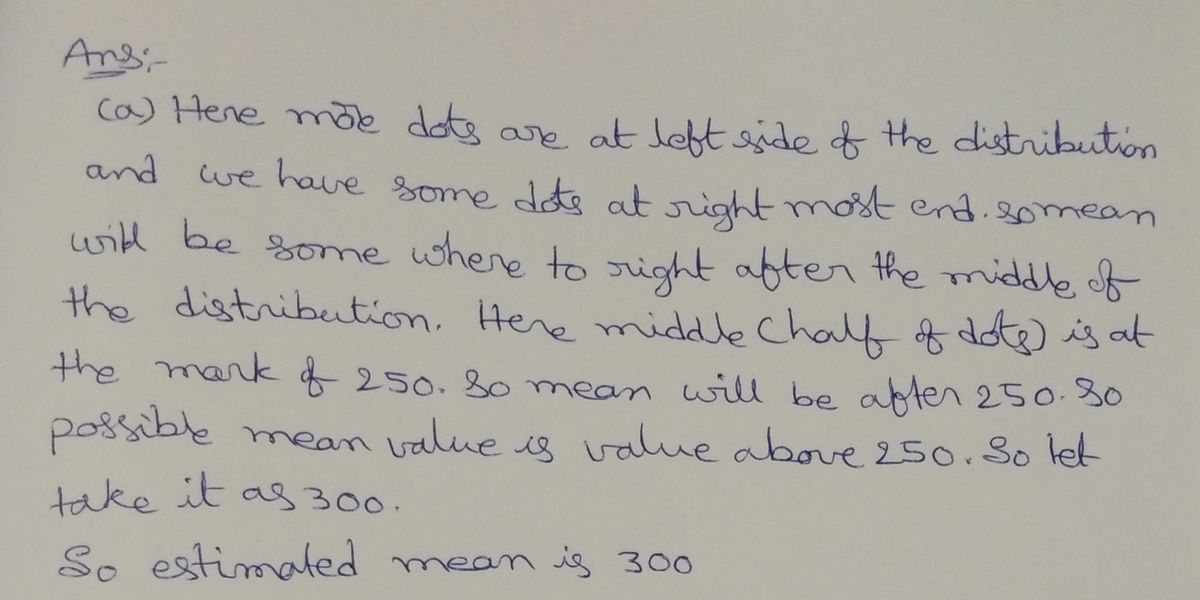 Ans:-
(a) Here more dots are at left side of the distribution
and we have some dots at right most end. so mean
will be some where to right after the middle of
the distribution. Here middle (half of dots) is at
the mark of 250. So mean will be after 250. So
possible mean value is value above 250. So let
take it as 300.
So estimated mean is 300